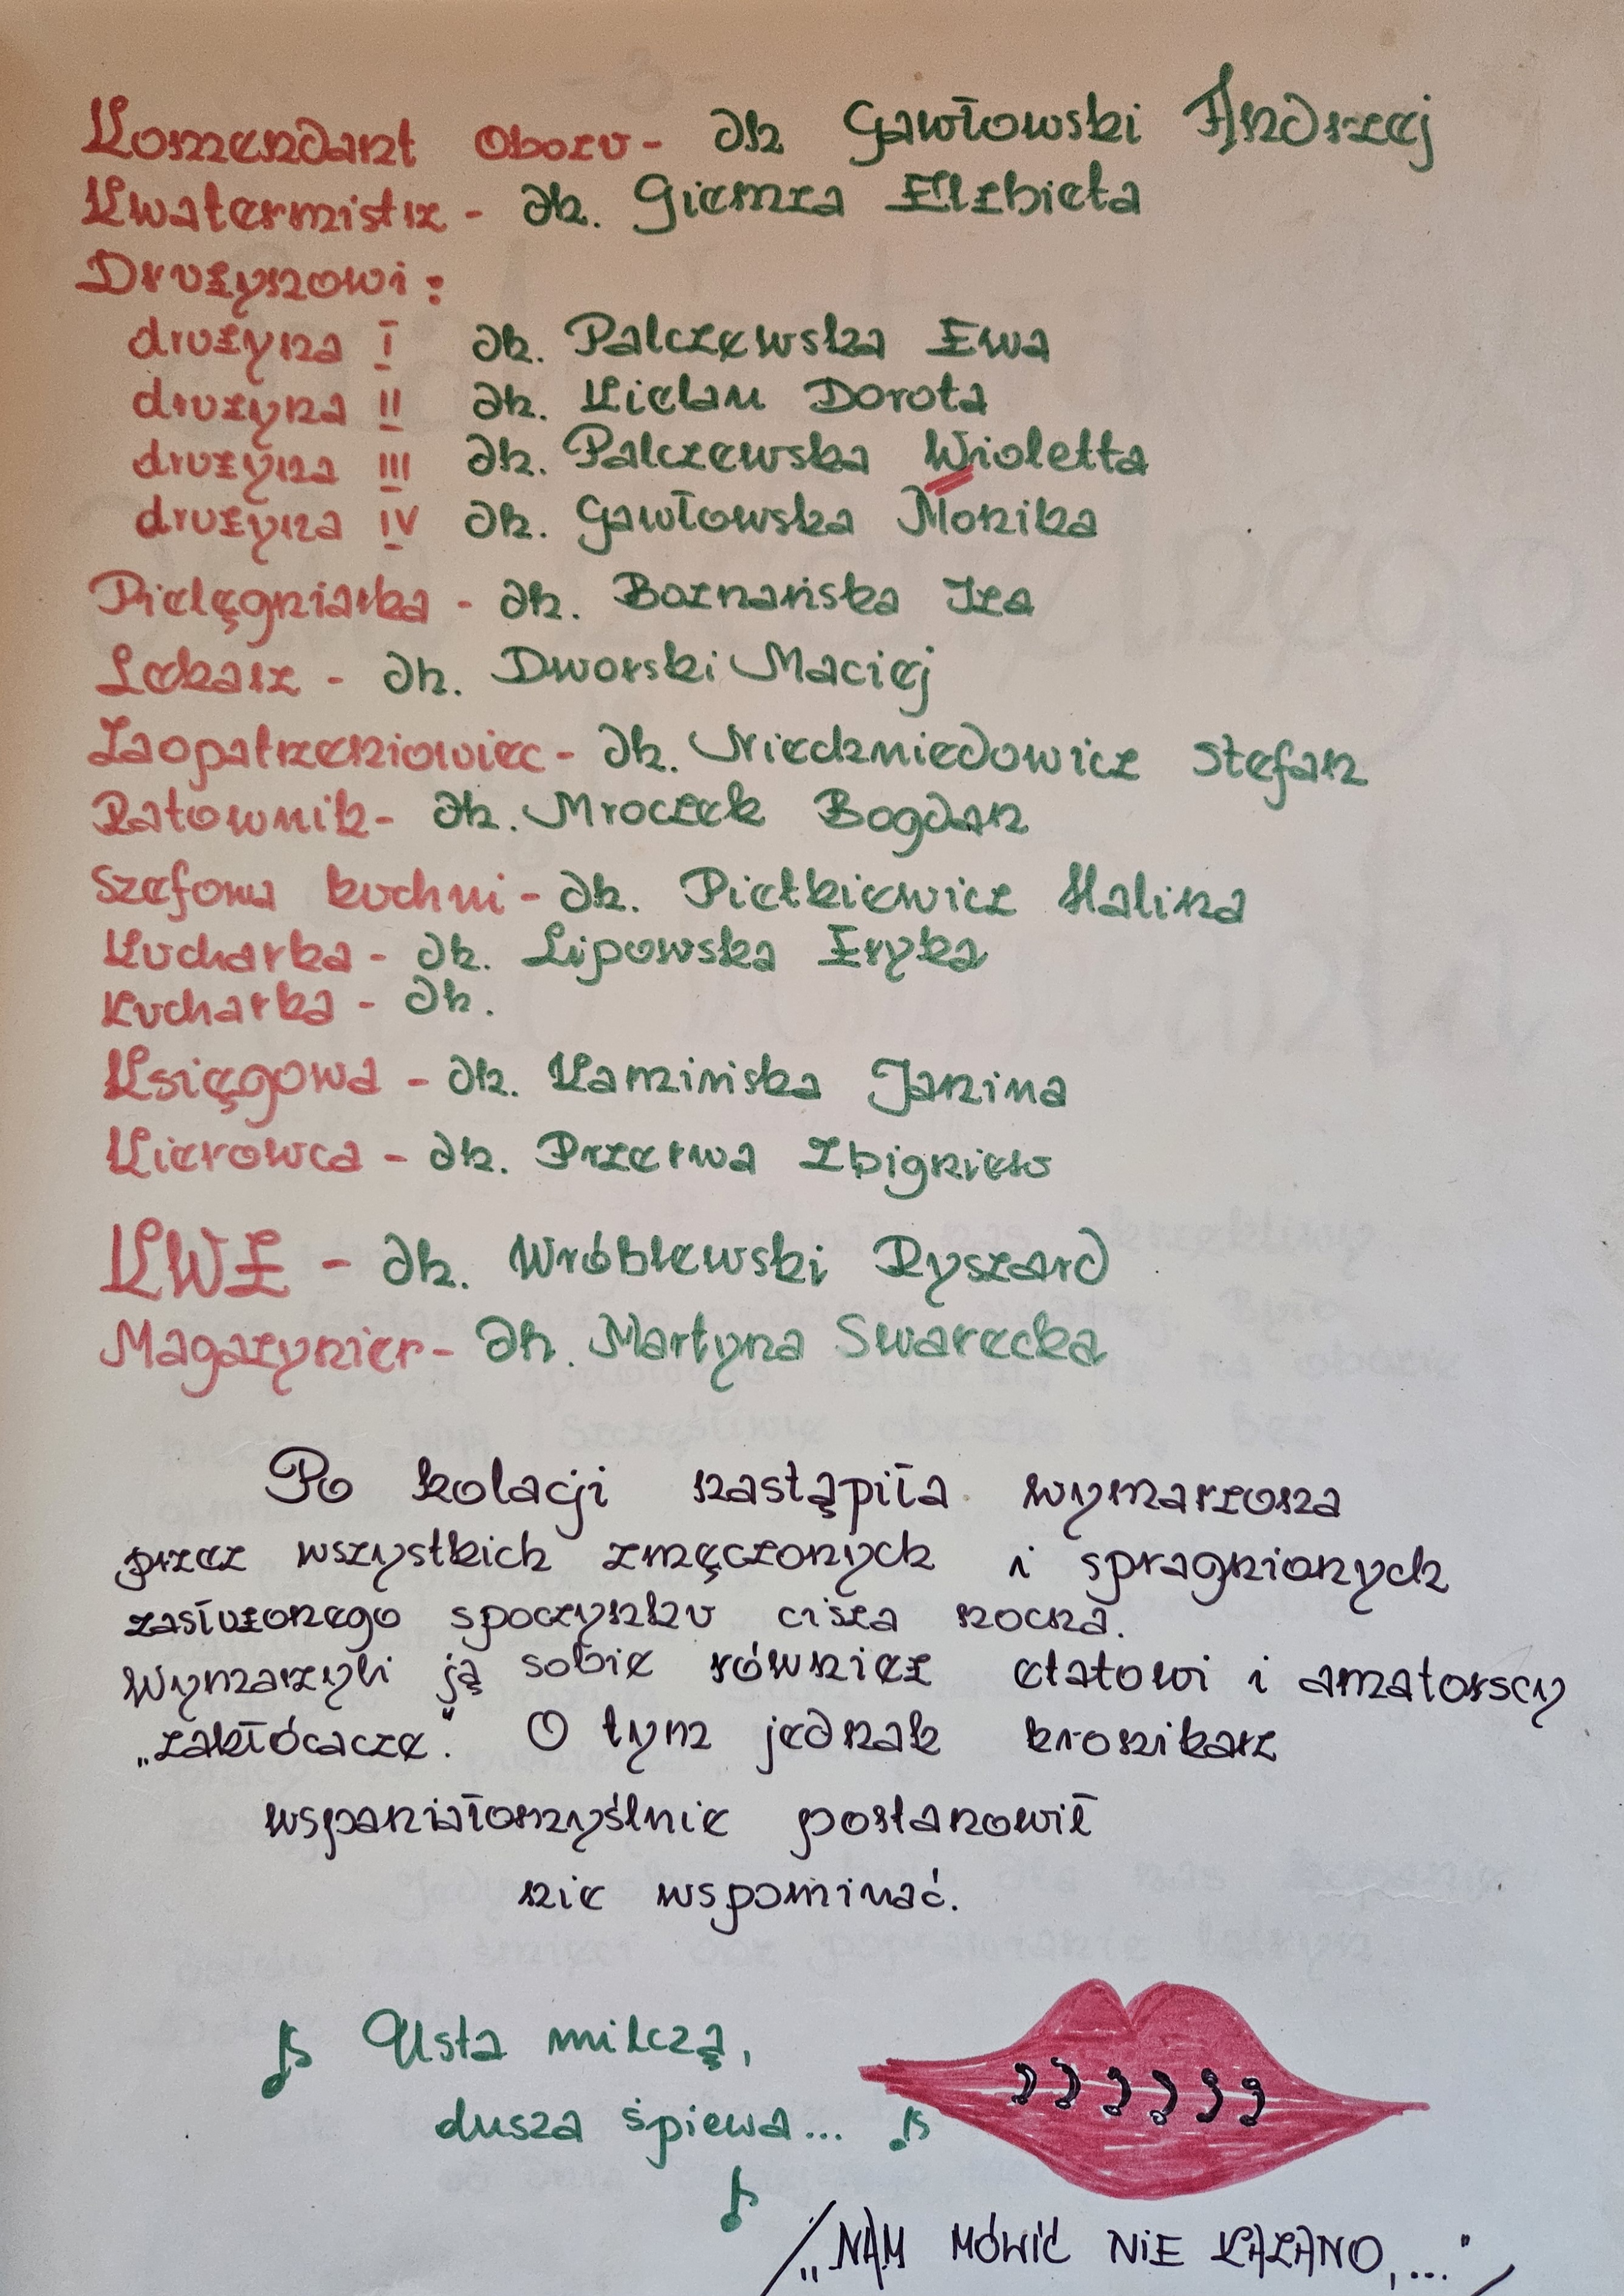 Komendant Obozu - dh Gawłowski Andrzej
Kwatermistrz - dh. Giemza Elżbieta
Drużynowi:
drużyna I dh. Palczewska Ewa
drużyna II dh. Kielan Dorota
drużyna III dh. Palczewska Wioletta
drużyna IV dh. Gawłowska Monika
Pielęgniarka - dh. Boznańska Iza
Lekarz - dh. Dworski Maciej
Zaopatrzeniowiec - dh. Niedzniedowicz Stefan
Ratownik - dh. Mroczek Bogdan
Szefowa kuchni - dh. Pietkiewicz Halina
Kucharka - dh. Lipowska Eryka
Kucharka - dh.
Księgowa - dh. Kamińska Janina
Kierowca - dh. Przerwa Zbigniew
KWŻ - dh. Wróblewski Ryszard
Magazynier - dh. Martyna Swarecka
Po kolacji nastąpiła wymarzona
przez wszystkich zmęczonych i spragnionych
zasłużonego spoczynku cisza nocna.
Wymarzyli ją sobie również etatowi i amatorscy
„zakłócacze". O tym jednak kronikarz
wspaniałomyślnie postanowił
nie wspominać.
Usta milczą,
dusza śpiewa...
/„NAM MÓWIĆ NIE KAZANO,..."/